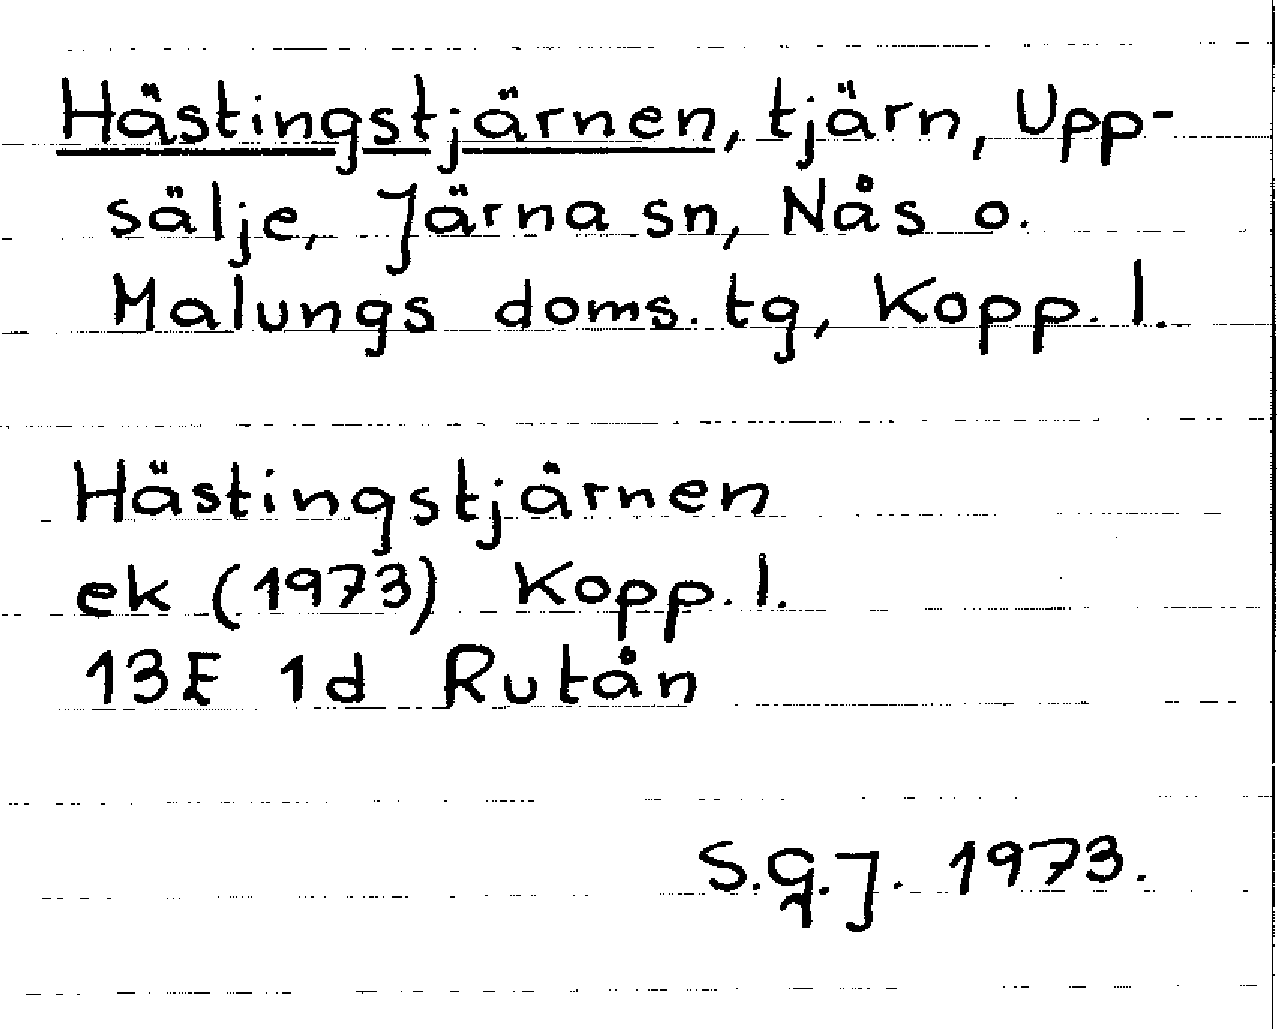 Hästingstjärnen, tjärn, Upp-
sälje, Järna sn, Nås o.
Malungs doms. tg, Kopp. l.
Hästingstjärnen
ek (1973) Kopp. l.
13E 1d Rutån
S.G.J. 1973.